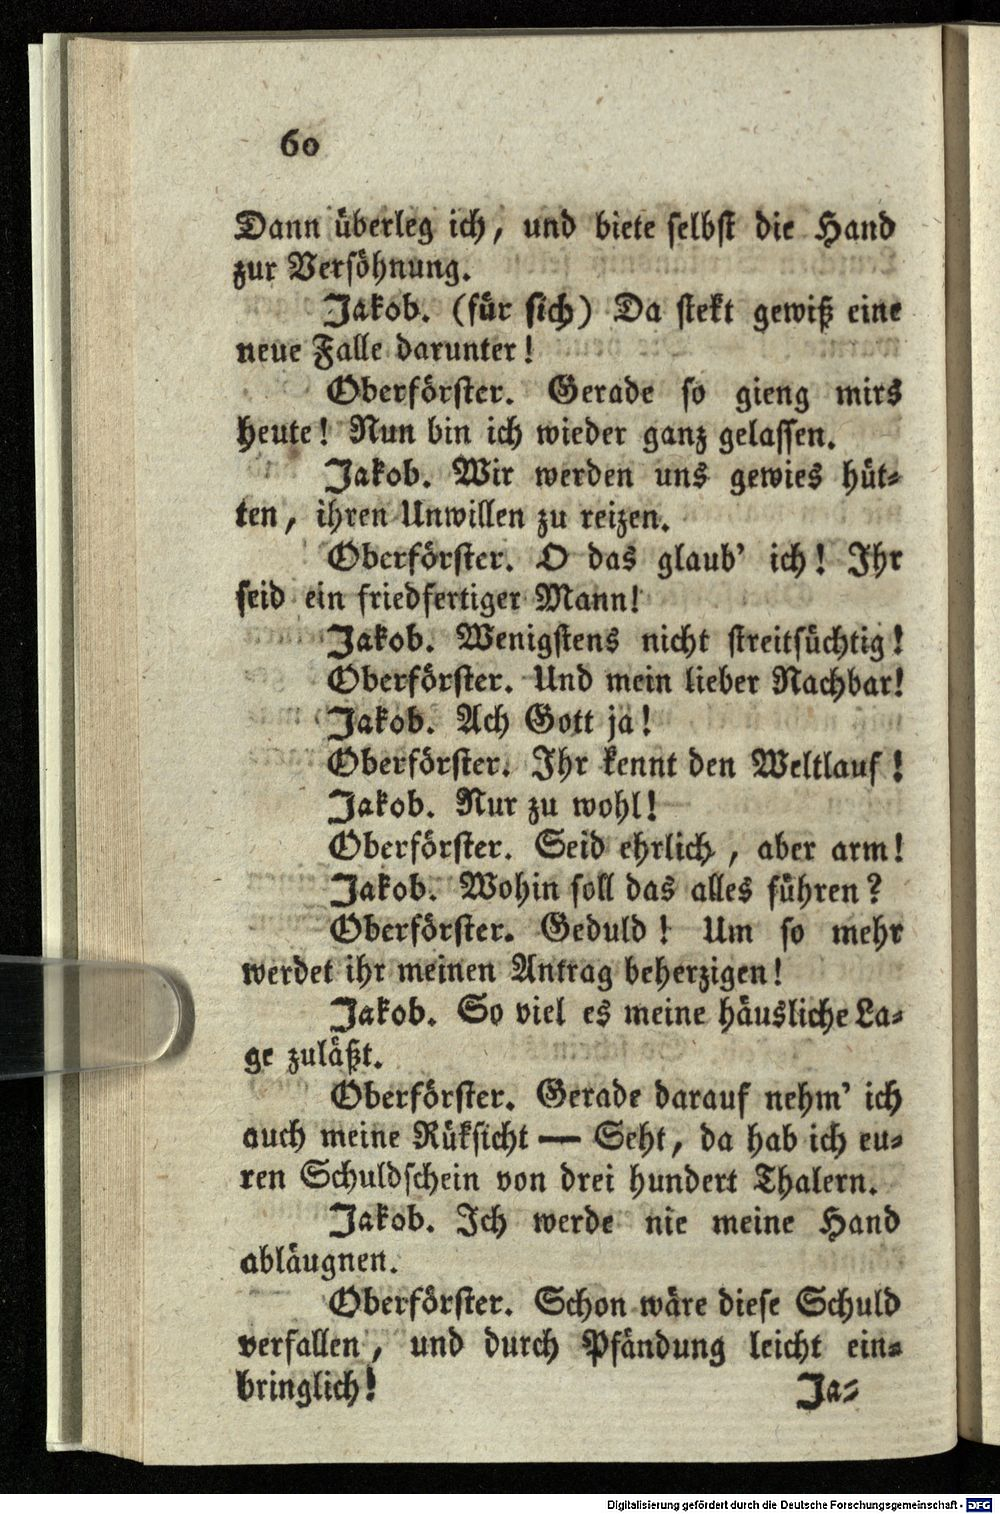 60
Dann überleg ich, und biete selbst die Hand
zur Versöhnung.
Jakob. (für sich) Da stekt gewiß eine
neue Falle darunter!
Oberförster. Gerade so gieng mirs
heute! Nun bin ich wieder ganz gelassen.
Jakob. Wir werden uns gewies hüt-
ten, ihren Unwillen zu reizen.
Oberförster. O das glaub' ich! Ihr
seid ein friedfertiger Mann!
Jakob. Wenigstens nicht streitsüchtig!
Oberförster. Und mein lieber Nachbar!
Jakob. Ach Gott ja!
Oberförster. Ihr kennt den Weltlauf!
Jakob. Nur zu wohl!
Oberförster. Seid ehrlich, aber arm!
Jakob. Wohin soll das alles führen?
Oberförster. Geduld! Um so mehr
werdet ihr meinen Antrag beherzigen!
Jakob. So viel es meine häusliche La-
ge zuläßt.
Oberförster. Gerade darauf nehm' ich
auch meine Rüksicht — Seht, da hab ich eu-
ren Schuldschein von drei hundert Thalern.
Jakob. Ich werde nie meine Hand
abläugnen.
Oberförster. Schon wäre diese Schuld
verfallen, und durch Pfändung leicht ein-
bringlich!
Ja-
Digitalisierung gefördert durch die Deutsche Forschungsgemeinschaft - DFG